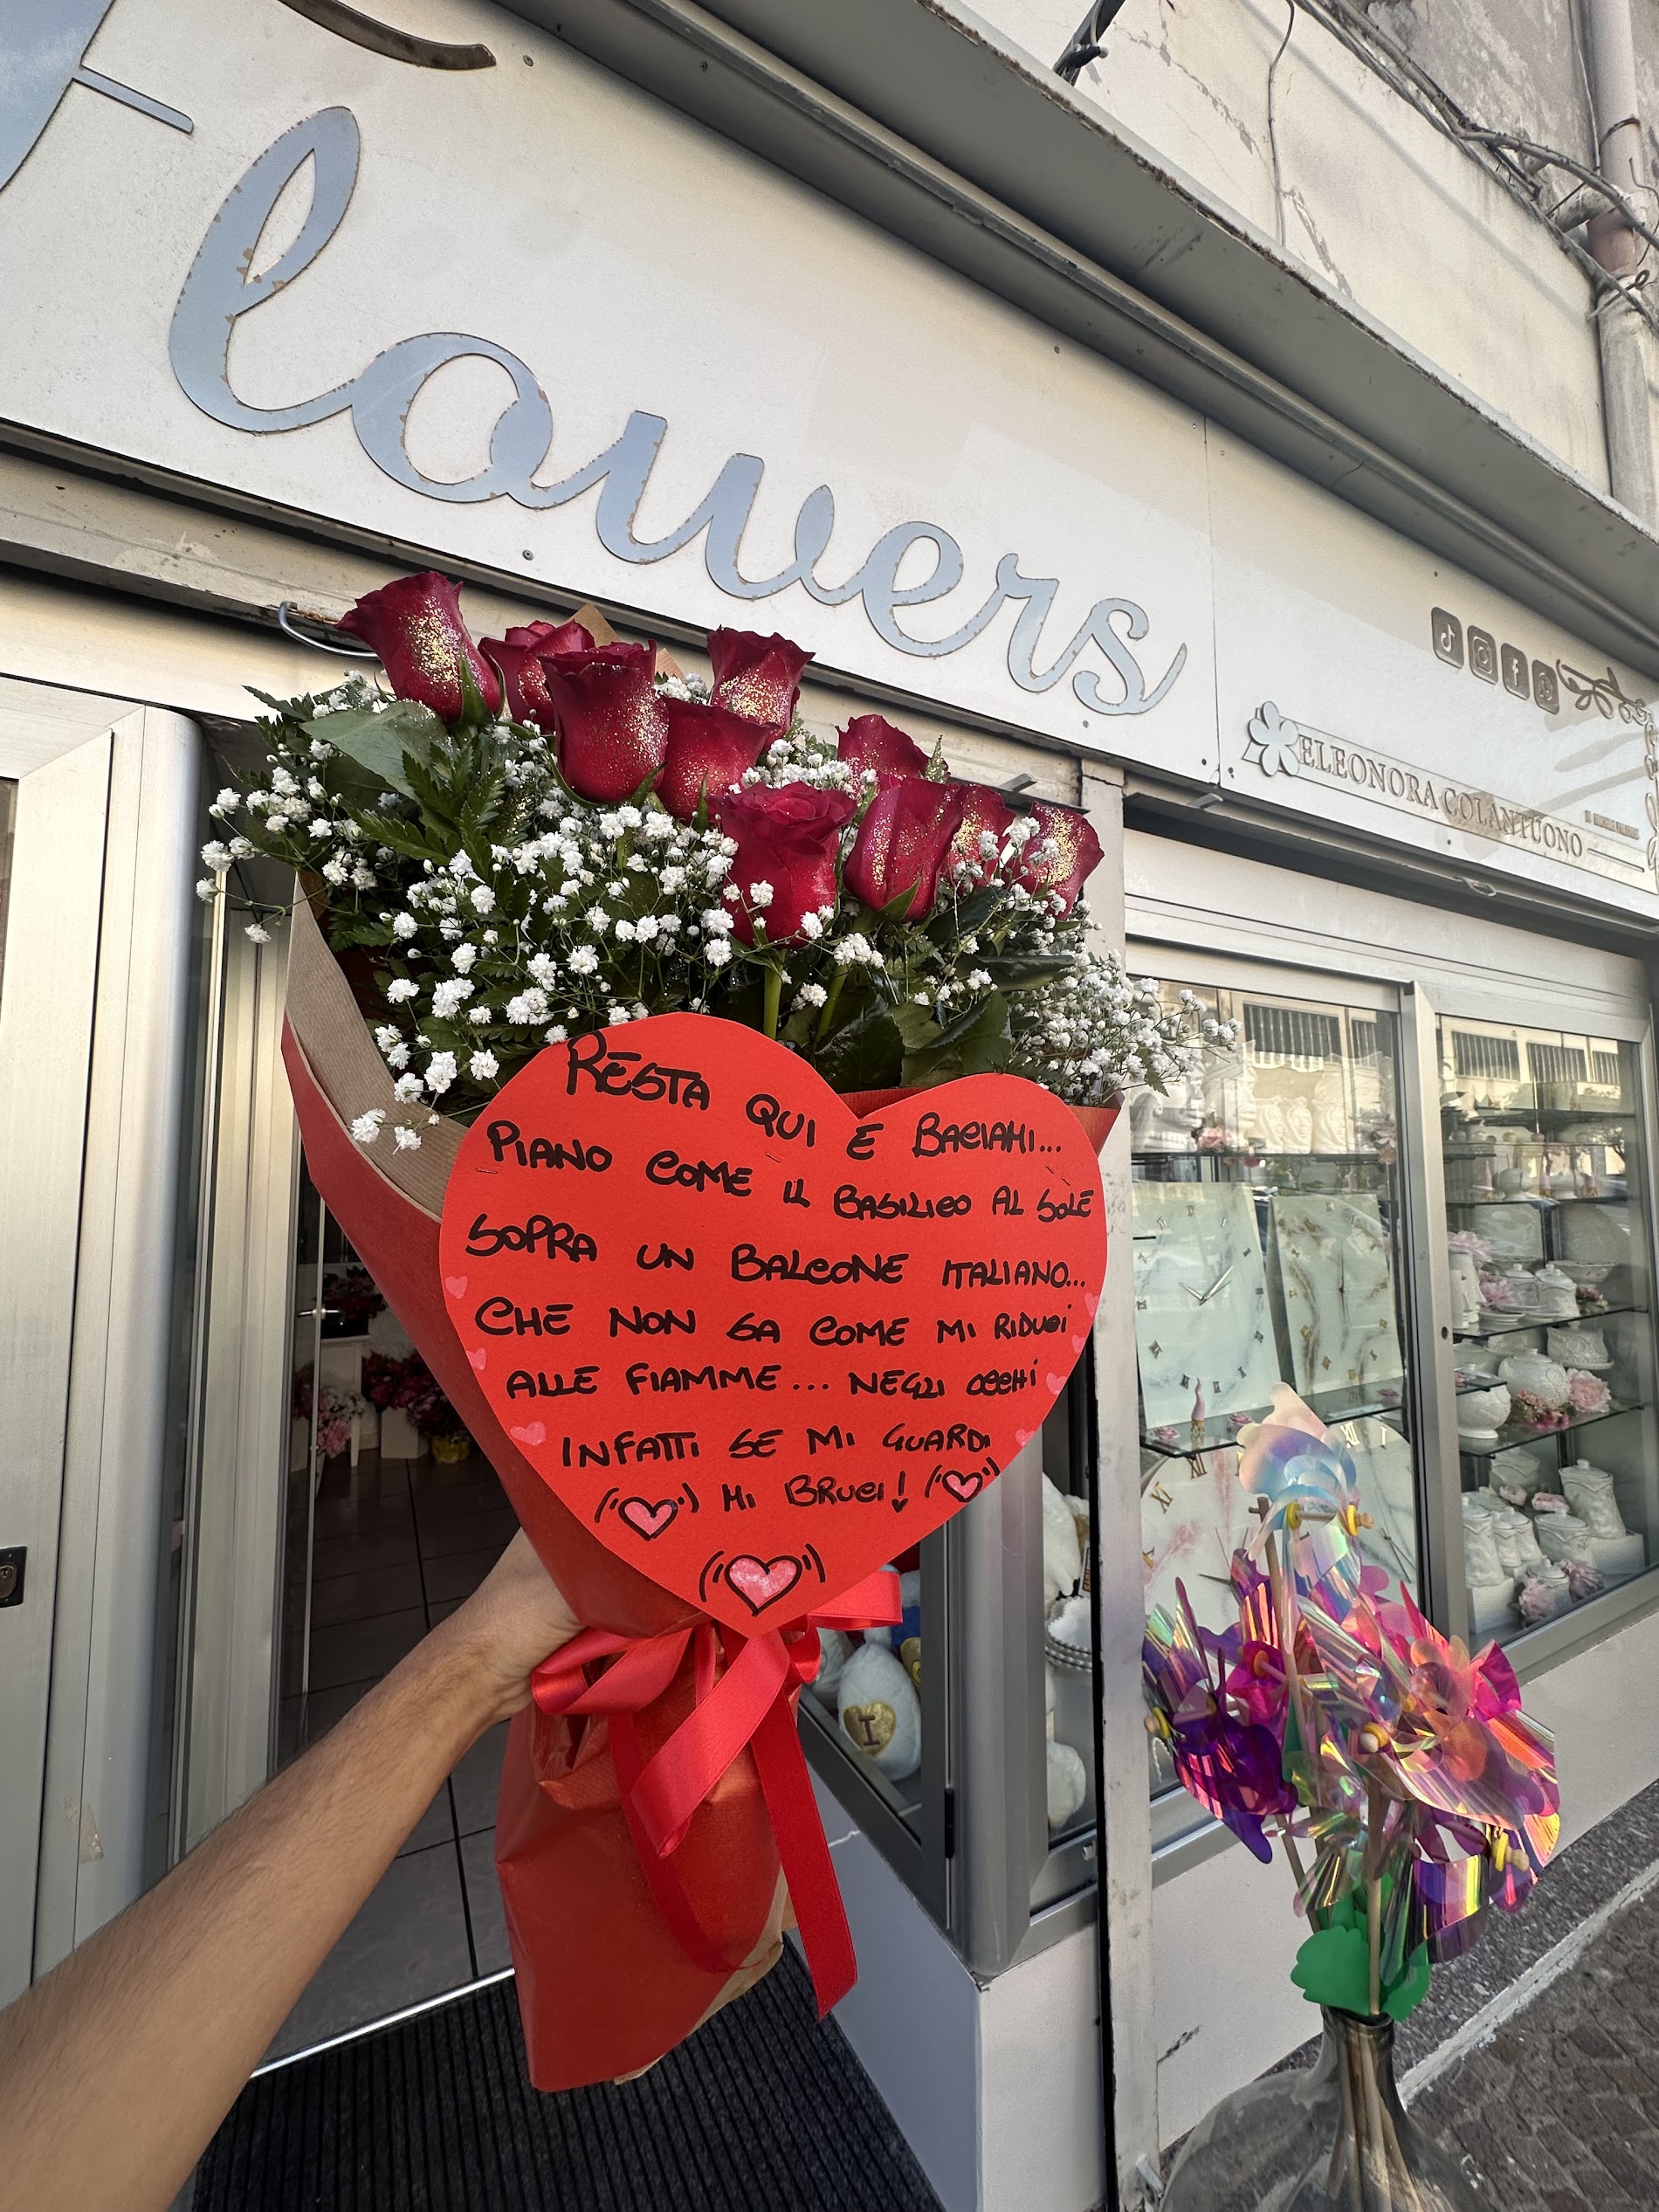 Flowers
ELEONORA COLANTUONO
RESTA QUI E BACIAMI...
PIANO COME IL BASILICO AL SOLE
SOPRA UN BALCONE ITALIANO...
CHE NON SA COME MI RIDUCI
ALLE FIAMME... NEGLI OCCHI
INFATTI SE MI GUARDI
MI BRUCI!
I